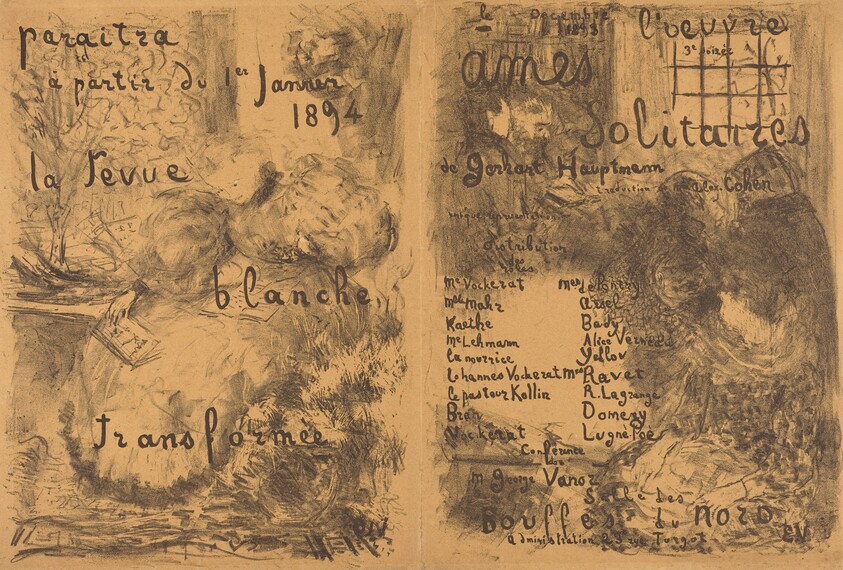 paraitra
à partir du 1er Janvier
1894
la revue
blanche
transformée
ev
le Decembre
1893
l'oeuvre
3e Soirée
ames
Solitaires
de Gerhart Hauptmann
traduction de mr alex. Cohen
distribution
des
rôles
Me Vockerat Mes de Pontry
Melle Mahr Ariel
Kaethe Bady
Me Lehmann Alice Verneuil
la nourrice Yellov
Johannes Vockerat Mrs Ravet
le pasteur Kollin R. Lagrange
Bran Domeny
Vockerat Lugné Poe
Conférence
de
Mr George Vanor
Salle des
Bouffes du Nord
administration 23 rue Turgot
ev